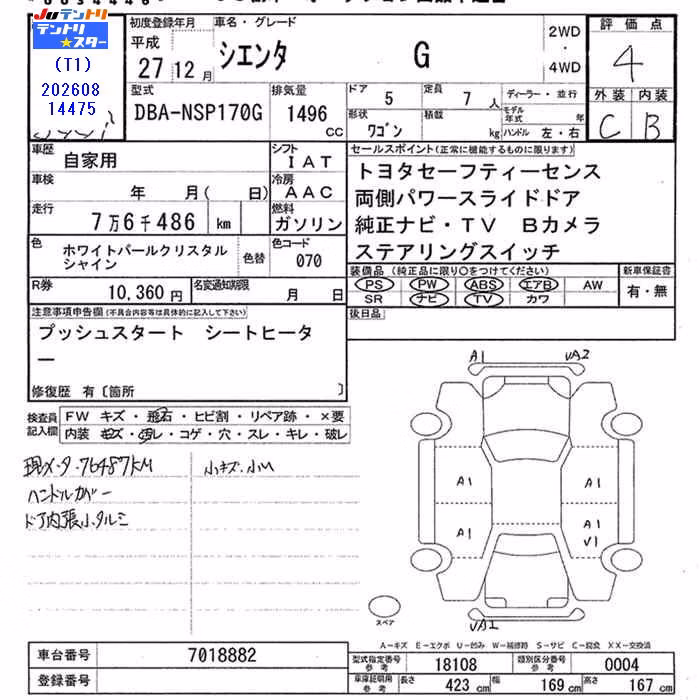 JU テントリ
テントリ★スター
(T1)
202608
14475
初度登録年月
平成
27 12 月
車名・グレード
シエンタ G
2WD
・
4WD
評価点
4
外装 内装
C B
型式
DBA-NSP170G
排気量
1496
CC
ドア
5
定員
7 人
形状
ワゴン
積載
kg
ディーラー・並行
モデル年式 年
ハンドル 左・右
車歴 自家用
シフト
IAT
車検 年 月( 日)
冷房
AAC
走行 7万6千486 km
燃料
ガソリン
色 ホワイトパールクリスタル
シャイン
色替
色コード
070
R券 10,360 円
名変通知期限 月 日
セールスポイント(正常に機能するものに限ります)
トヨタセーフティーセンス
両側パワースライドドア
純正ナビ・TV Bカメラ
ステアリングスイッチ
装備品 (純正品に限り○をつけてください)
PS PW ABS エアB AW
SR ナビ TV カワ
新車保証書
有・無
後日品
注意事項申告欄(不具合内容等は具体的に記入して下さい)
プッシュスタート シートヒータ
ー
修復歴 有〔箇所 〕
検査員
記入欄
FW キズ・飛石・ヒビ割・リペア跡・×要
内装 キズ・汚レ・コゲ・穴・スレ・キレ・破レ
現メータ 76487KM
小キズ、小U
ハンドルカバー
ドア内張小タルミ
A1
VA2
A1
A1
A1
A1
V1
VA1
スペア
A-キズ E-エクボ U-凹み W-補修跡 S-サビ C-腐食 XX-交換済
車台番号 7018882
登録番号
型式指定番号
参考
18108
類別区分番号
参考
0004
車庫証明用
参考
長さ 423 cm
幅 169 cm
高さ 167 cm